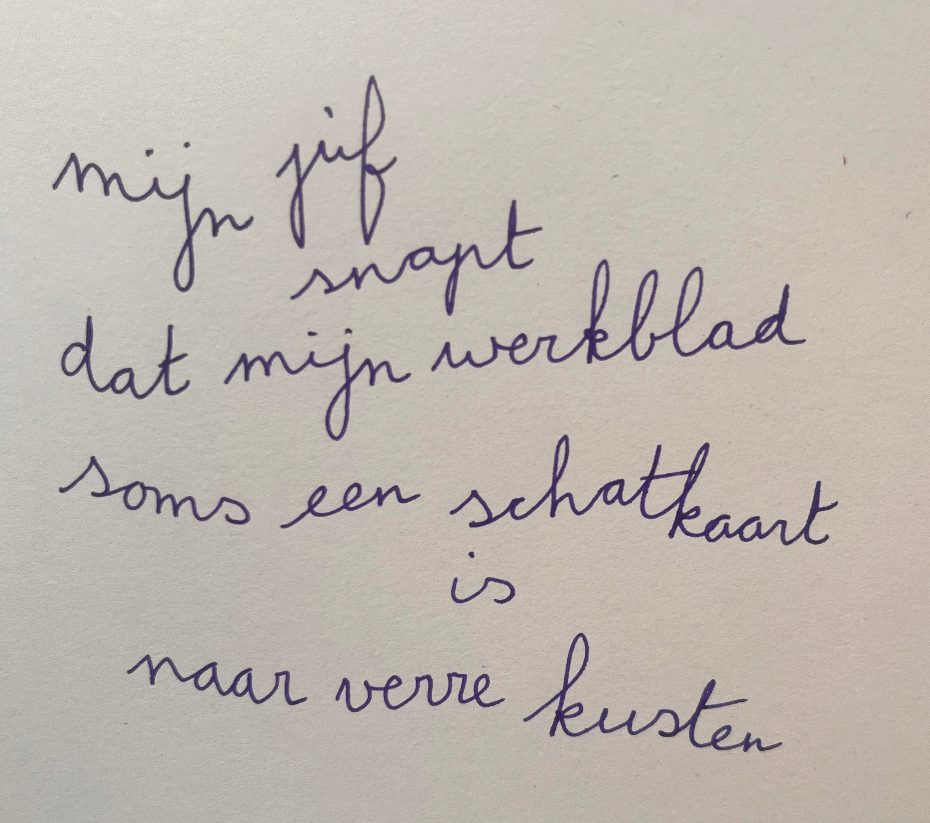 mijn juf
snapt
dat mijn werkblad
soms een schatkaart
is
naar verre kusten